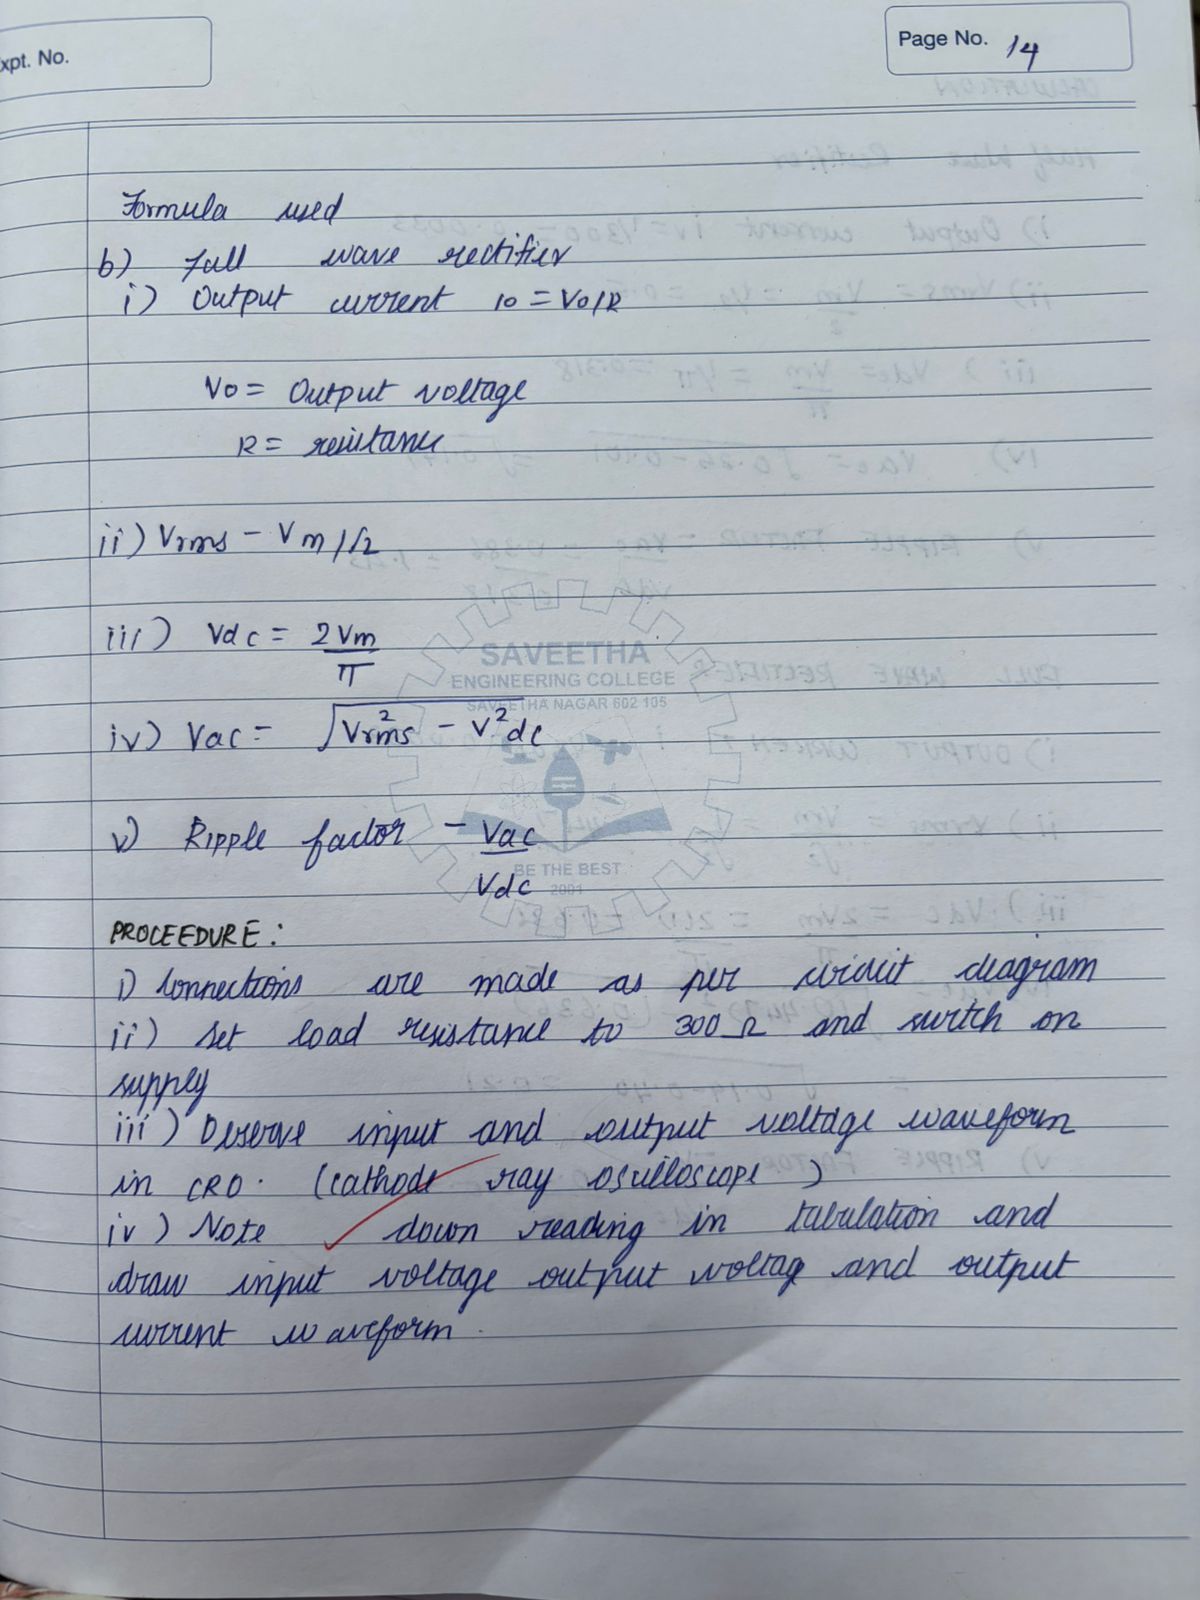 xpt. No.
Page No. 14
Formula used
b) full wave rectifier
i) Output current io = Vo/R
Vo = Output voltage
R = resistance
ii) Vrms - Vm/√2
iii) Vdc = 2Vm
π
iv) Vac = √Vrms² - V²dc
v) Ripple factor - Vac
Vdc
SAVEETHA
ENGINEERING COLLEGE
SAVEETHA NAGAR 602 105
BE THE BEST
2001
PROCEEDURE:
i) Connections are made as per circuit diagram
ii) Set load resistance to 300Ω and switch on
supply
iii) Observe input and output voltage waveform
in CRO. (cathode ray oscilloscope)
iv) Note down reading in tabulation and
draw input voltage output voltag and output
current waveform.